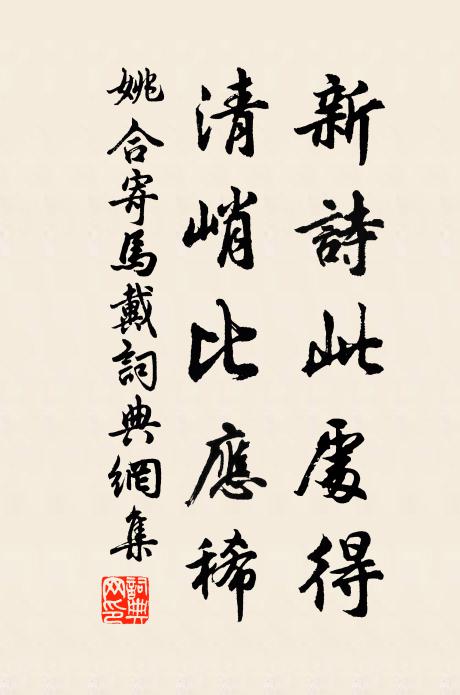 新詩此處得
清峭比應稀
姚合寄馬戴詞典網集
詞典網印